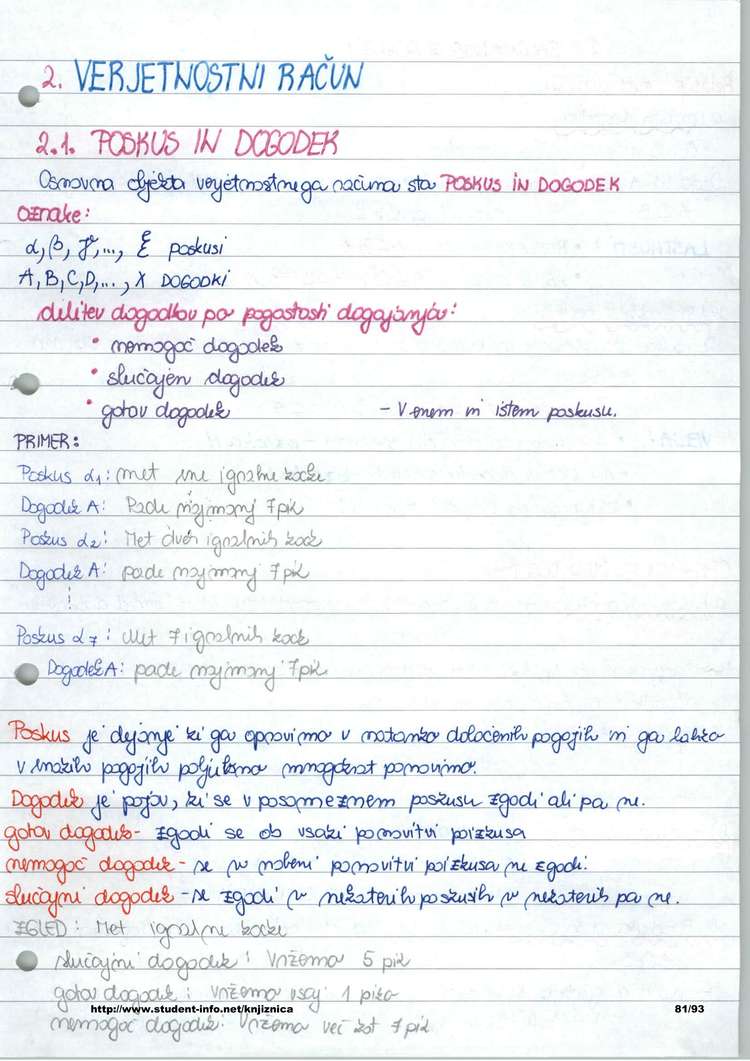 2. VERJETNOSTNI RAČUN
2.1. POSKUS IN DOGODEK
Osnovna objekta verjetnostnega računa sta POSKUS IN DOGODEK
oznake:
α, β, γ, ..., ξ poskusi
A, B, C, D, ..., X DOGODKI
delitev dogodkov po pogostosti dogajanja:
• nemogoč dogodek
• slučajen dogodek
• gotov dogodek - V enem in istem poskusu.
PRIMER:
Poskus α1: met ene igralne kocke
Dogodek A: Pade najmanj 7 pik
Poskus α2: Met dveh igralnih kock
Dogodek A: pade najmanj 7 pik
⋮
Poskus α7: Met 7 igralnih kock
Dogodek A: pade najmanj 7 pik
Poskus je dejanje ki ga opravimo v natanko določenih pogojih in ga lahko
v enakih pogojih poljubno mnogokrat ponovimo.
Dogodek je pojav, ki se v posameznem poskusu zgodi ali pa ne.
gotov dogodek - zgodi se ob vsaki ponovitvi poizkusa
nemogoč dogodek - se v nobeni ponovitvi poizkusa ne zgodi.
slučajni dogodek - se zgodi v nekaterih poskusih v nekaterih pa ne.
ZGLED: Met igralne kocke
slučajni dogodek: Vržemo 5 pik
gotov dogodek: vržemo vsaj 1 piko
http://www.student-info.net/knjiznica 81/93
nemogoč dogodek: Vržemo več kot 7 pik